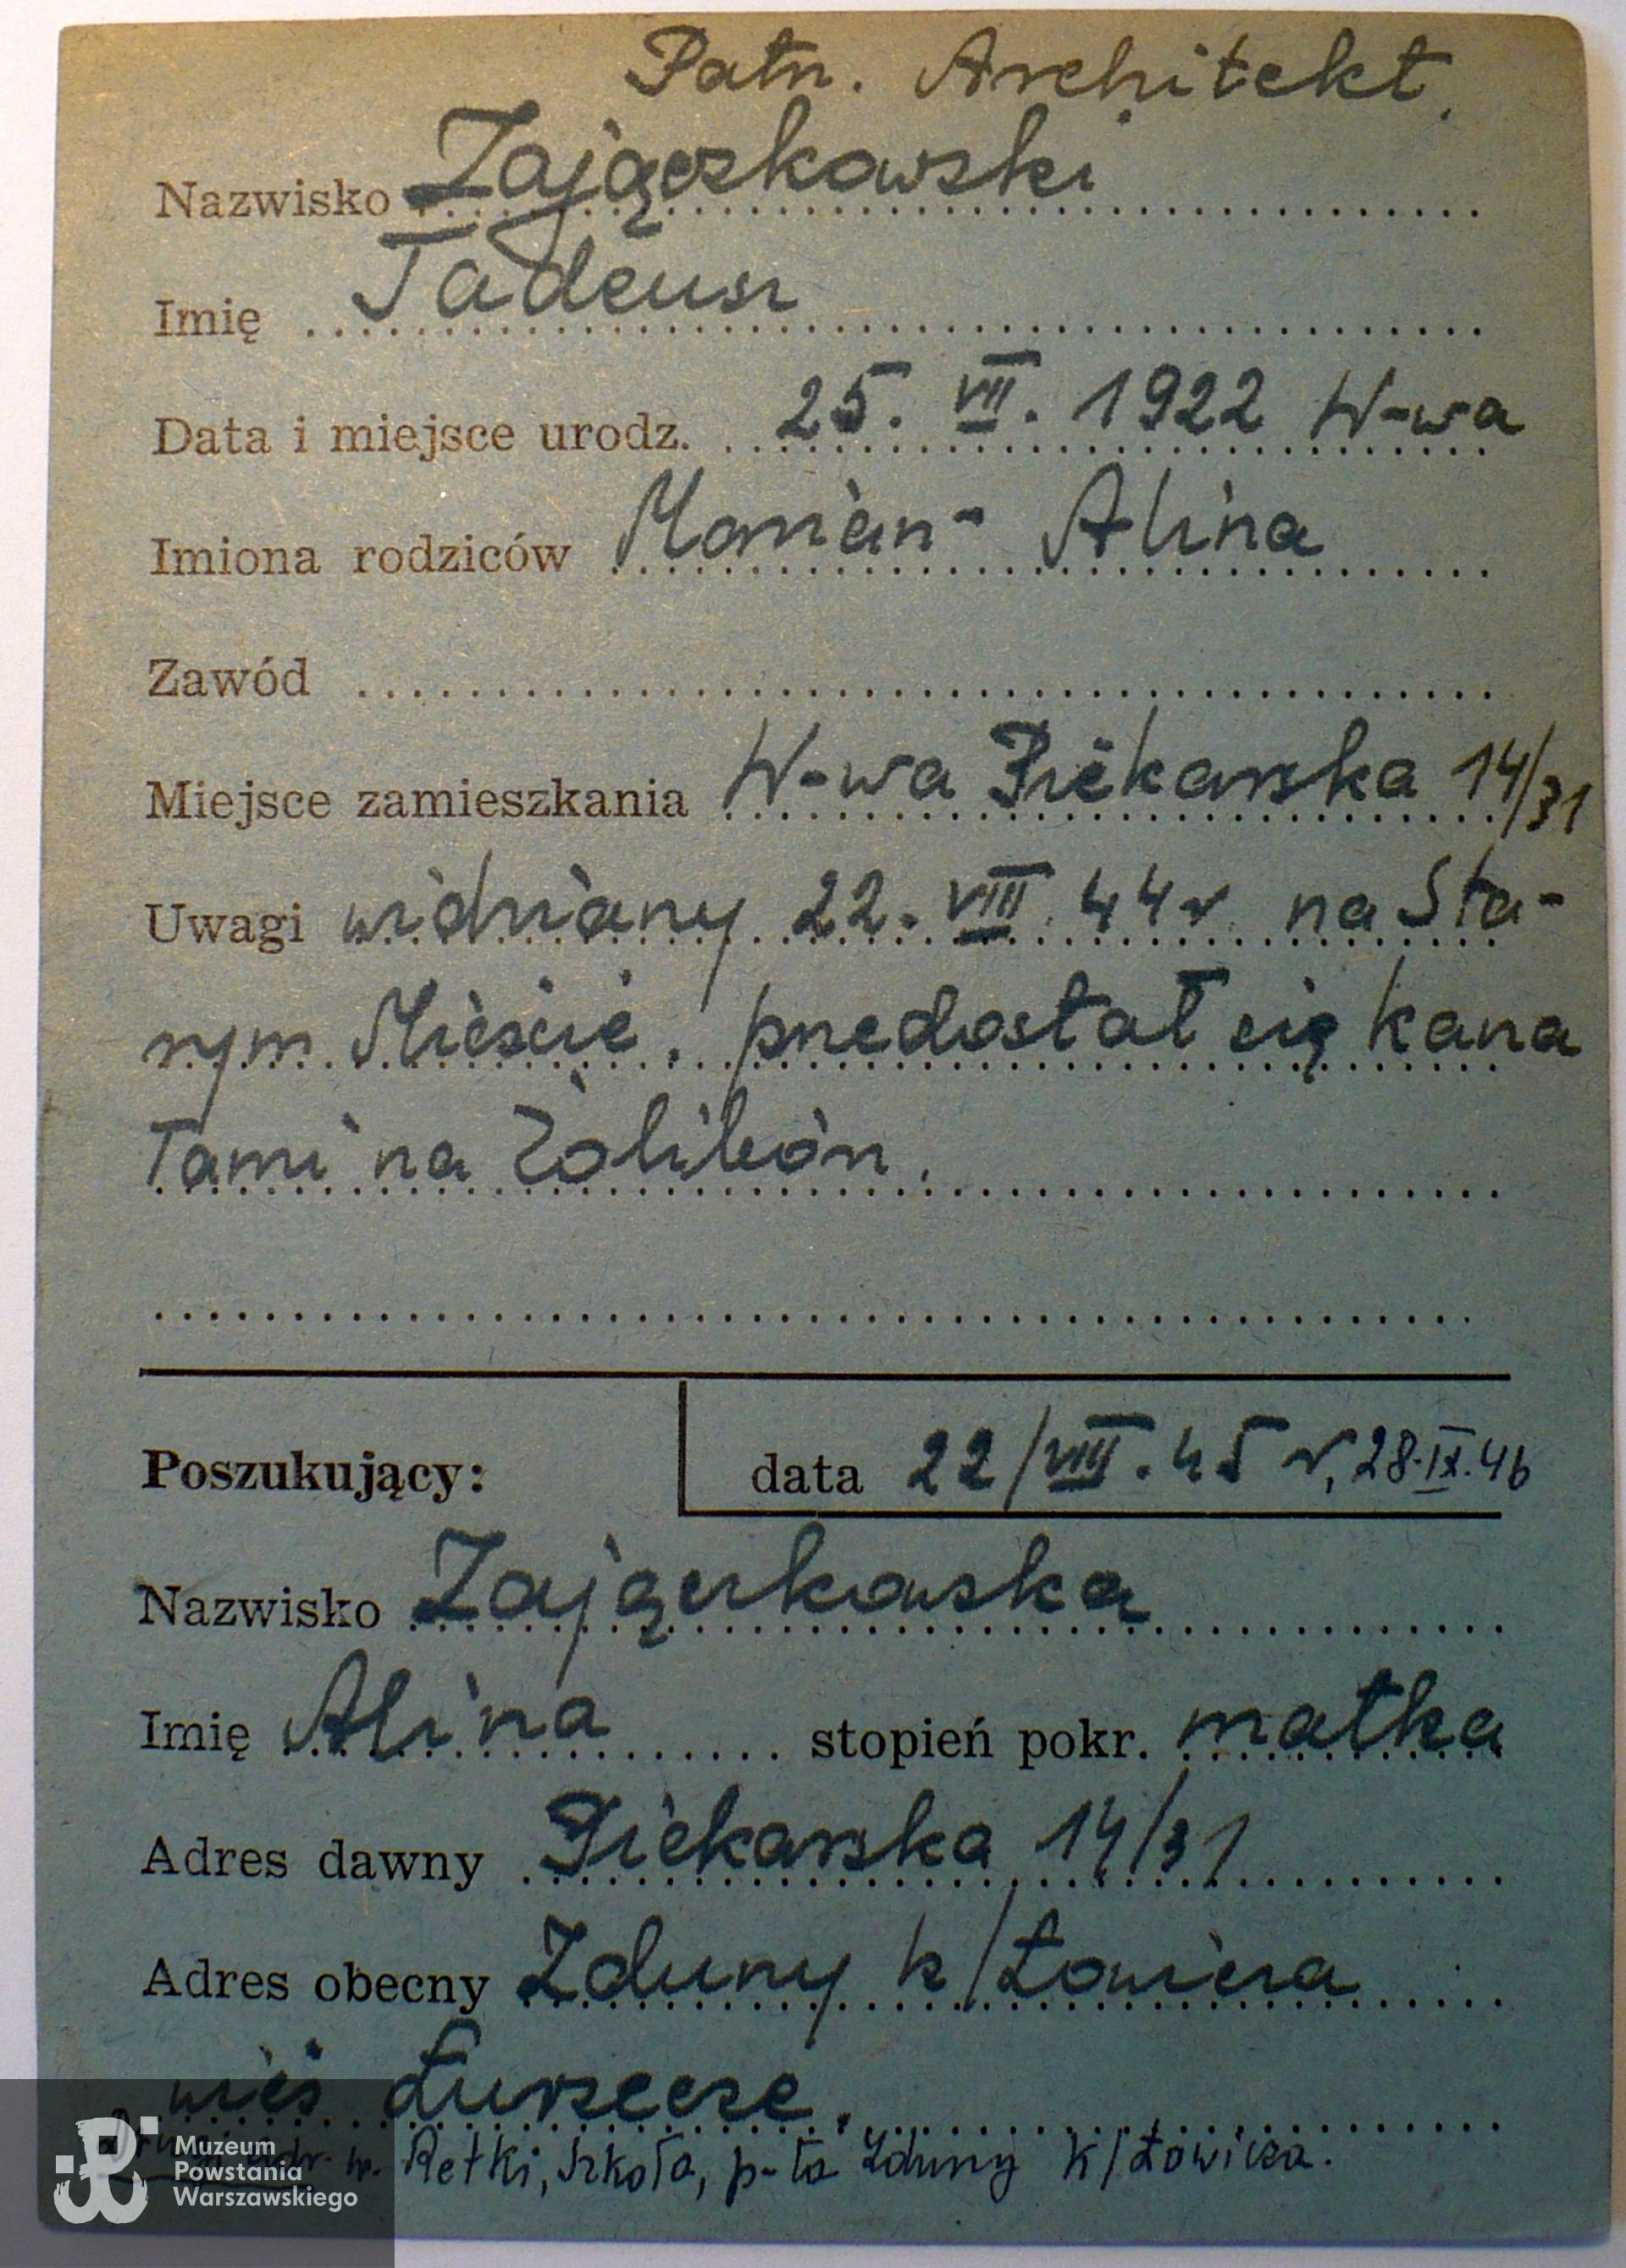 Patr. Architekt.
Nazwisko Zajączkowski
Imię Tadeusz
Data i miejsce urodz. 25. VII. 1922 W-wa
Imiona rodziców Marian - Alina
Zawód
Miejsce zamieszkania W-wa Piekarska 14/31
Uwagi widziany 22. VIII. 44 r na Sta-
rym Mieście, przedostał się kana
łami na Żoliborz.
Poszukujący: data 22/VIII. 45 r, 28.IX.46
Nazwisko Zajączkowska
Imię Alina stopień pokr. matka
Adres dawny Piekarska 14/31
Adres obecny Zduny k/Łowicza
wieś Łurzecze.
adr. w. Retki, Szkoła, p-ta Zduny k/Łowicza.
Muzeum
Powstania
Warszawskiego